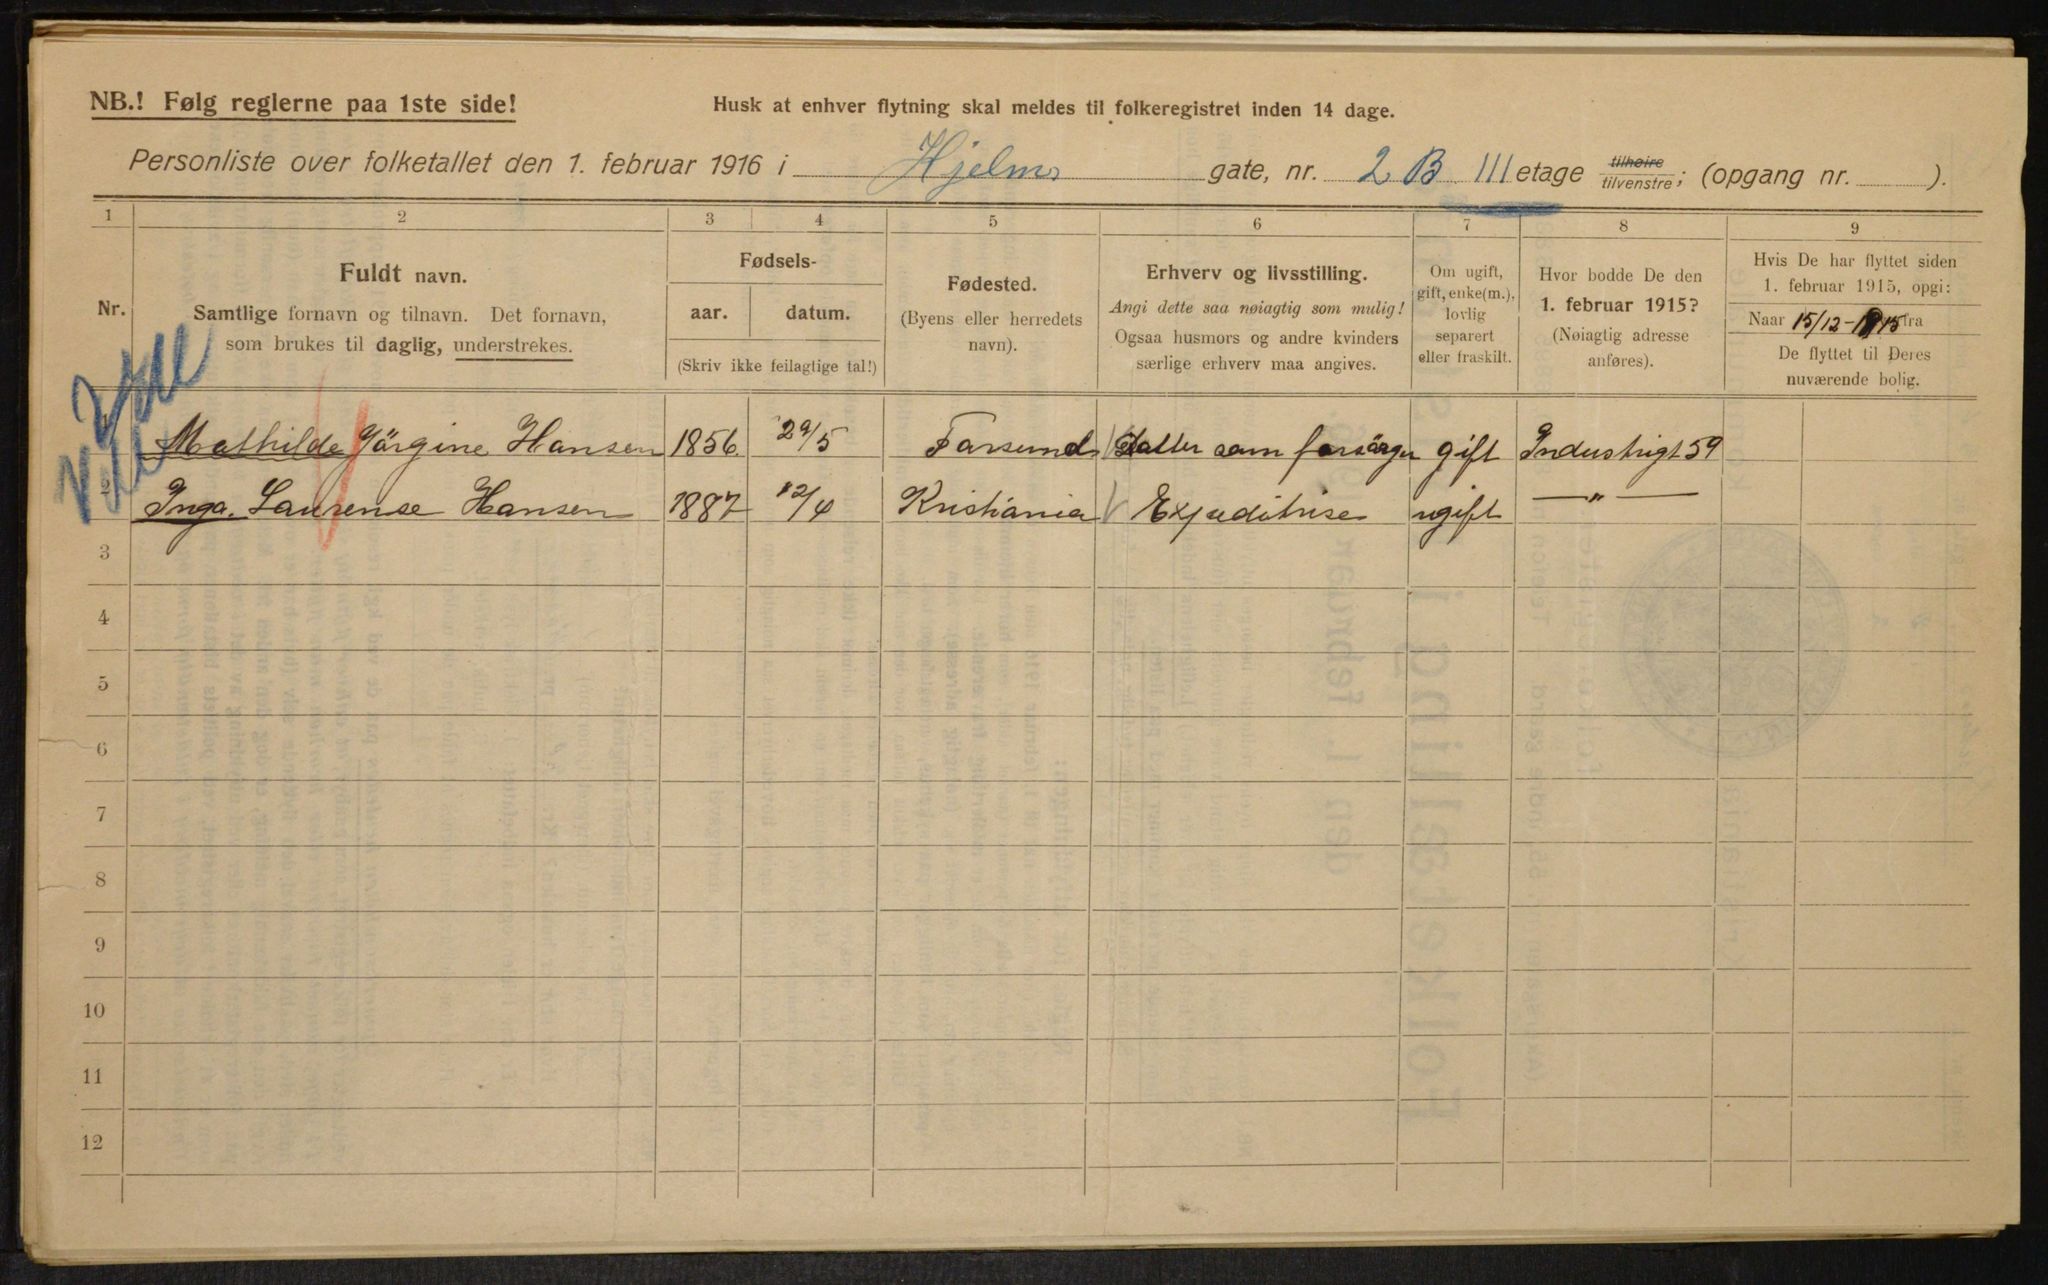 NB.! Følg reglerne paa 1ste side!
Husk at enhver flytning skal meldes til folkeregistret inden 14 dage.
Personliste over folketallet den 1. februar 1916 i Hjelms gate, nr. 2 B III etage tilhøire tilvenstre; (opgang nr. ).
1 2 3 4 5 6 7 8 9
Nr.
Fuldt navn.
Samtlige fornavn og tilnavn. Det fornavn,
som brukes til daglig, understrekes.
Fødsels-
aar. datum.
(Skriv ikke feilagtige tal!)
Fødested.
(Byens eller herredets
navn).
Erhverv og livsstilling.
Angi dette saa nøiagtig som mulig!
Ogsaa husmors og andre kvinders
særlige erhverv maa angives.
Om ugift,
gift, enke(m.),
lovlig
separert
eller fraskilt.
Hvor bodde De den
1. februar 1915?
(Nøiagtig adresse
anføres).
Hvis De har flyttet siden
1. februar 1915, opgi:
Naar 15/12-1915 fra
De flyttet til Deres
nuværende bolig.
Mathilde Jörgine Hansen 1856. 29/5 Farsund Datter som forsörger gift Industrigt 59
2 Inga. Laurense Hansen 1887 12/4 Kristiania Expeditrise ugift — " —
3
4
5
6
7
8
9
10
11
12